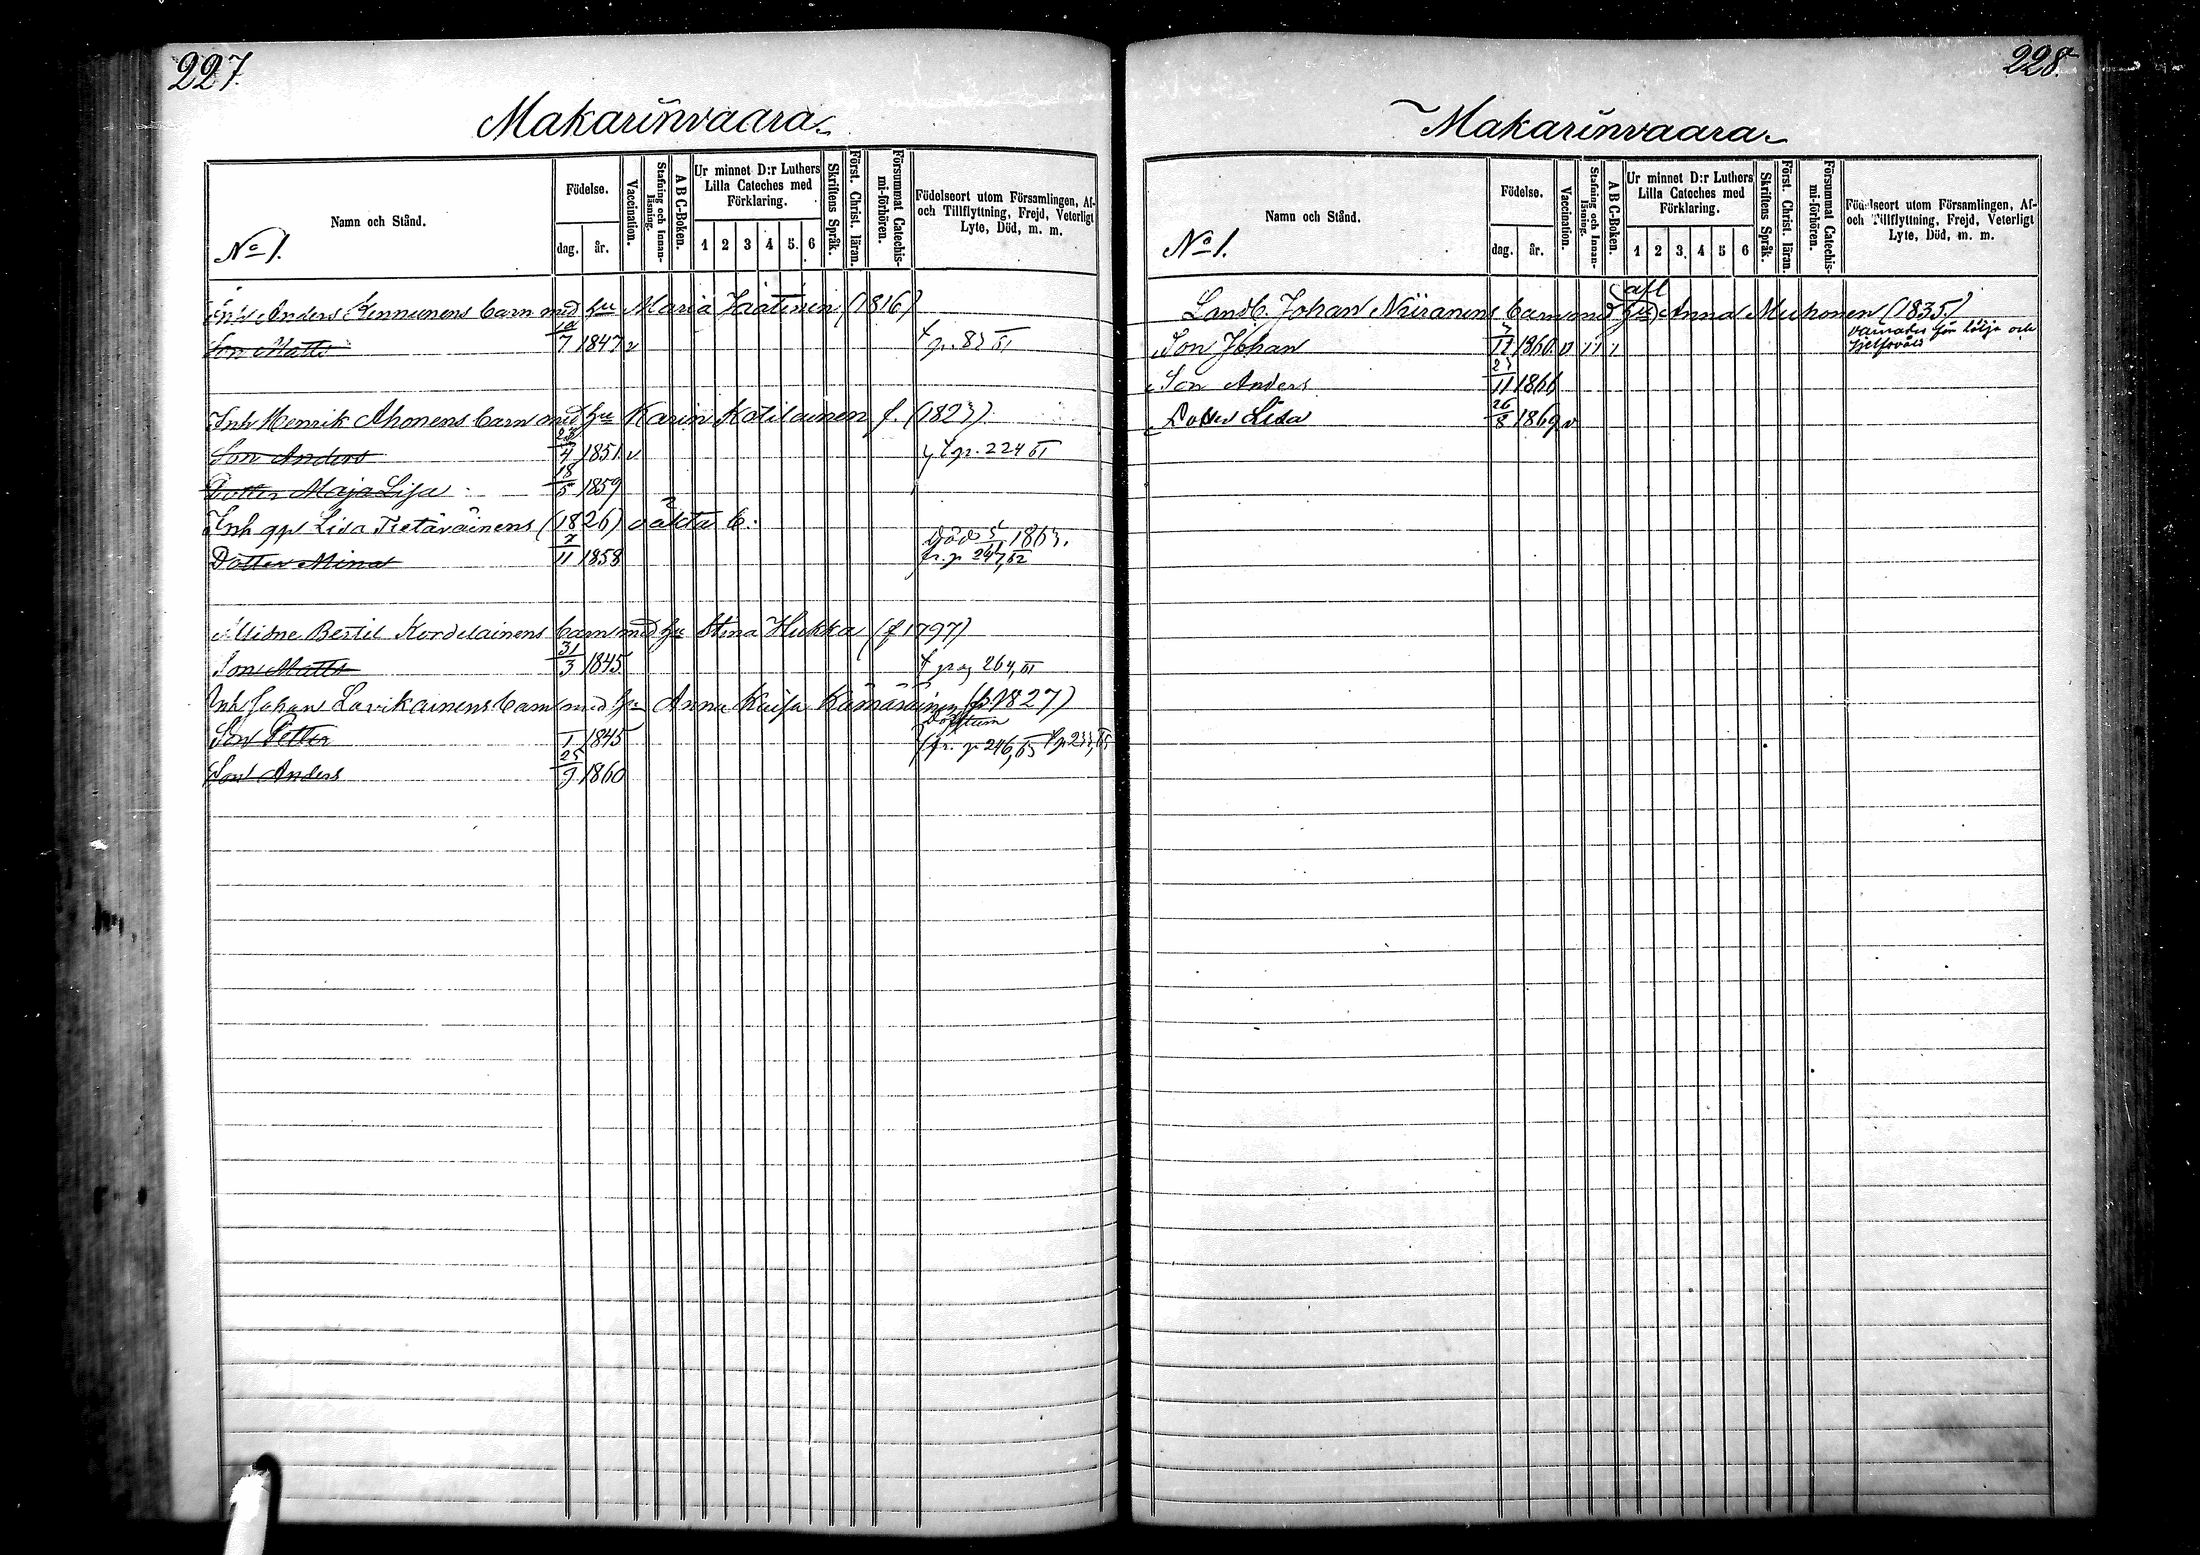 227.
Makarinvaara
Namn och Stånd.
Födelse.
dag.
år.
Vaccination.
Stafning och Innanläsning.
A B C-Boken.
Ur minnet D:r Luthers Lilla Cateches med Förklaring.
1 2 3 4 5. 6
Skriftens Språk.
Först. Christ. läran.
Försummat Catechismi-förhören.
Födelseort utom Församlingen, Af- och Tillflyttning, Frejd, Veterligt Lyte, Död, m. m.
No 1.
Anders Kinnunens barn med hu Maria Väätinen (1816)
Son Matts 10/7 1847 v
Inh Henrik Ahonens barn med hu Karin Kotilainen f. (1823)
Son Anders 4 1851 v p. 224 III
Dotter Maja Lisa 18/5 1859
Inh Lisa Pietäväinens (1826) oäkta b.
Dotter Mina 11 1858 död 1863.
Bertil Kordelainens barn med hu Stina Hukka (f 1797)
Son Matts 31/3 1845 pag 264, III
Inh Johan Lavikainens barn med hu Anna Kaisa Kämäräinen (f. 1827)
Son Petter 1 1845 fr. p 246,
Son Anders 25/9 1860
228.
Makarinvaara
Namn och Stånd.
Födelse.
dag.
år.
Vaccination.
Stafning och Innanläsning.
A B C-Boken.
Ur minnet D:r Luthers Lilla Cateches med Förklaring.
1 2 3. 4 5 6
Skriftens Språk.
Först. Christ. läran.
Försummat Catechismi-förhören.
Födelseort utom Församlingen, Af- och Tillflyttning, Frejd, Veterligt Lyte, Död, m. m.
No 1.
afl
Landb. Johan Niiranens barn med hu Anna Muhonen (1835)
Son Johan 1860 v
Son Anders 23/11 1866
Dotter Lisa 26/8 1869 v